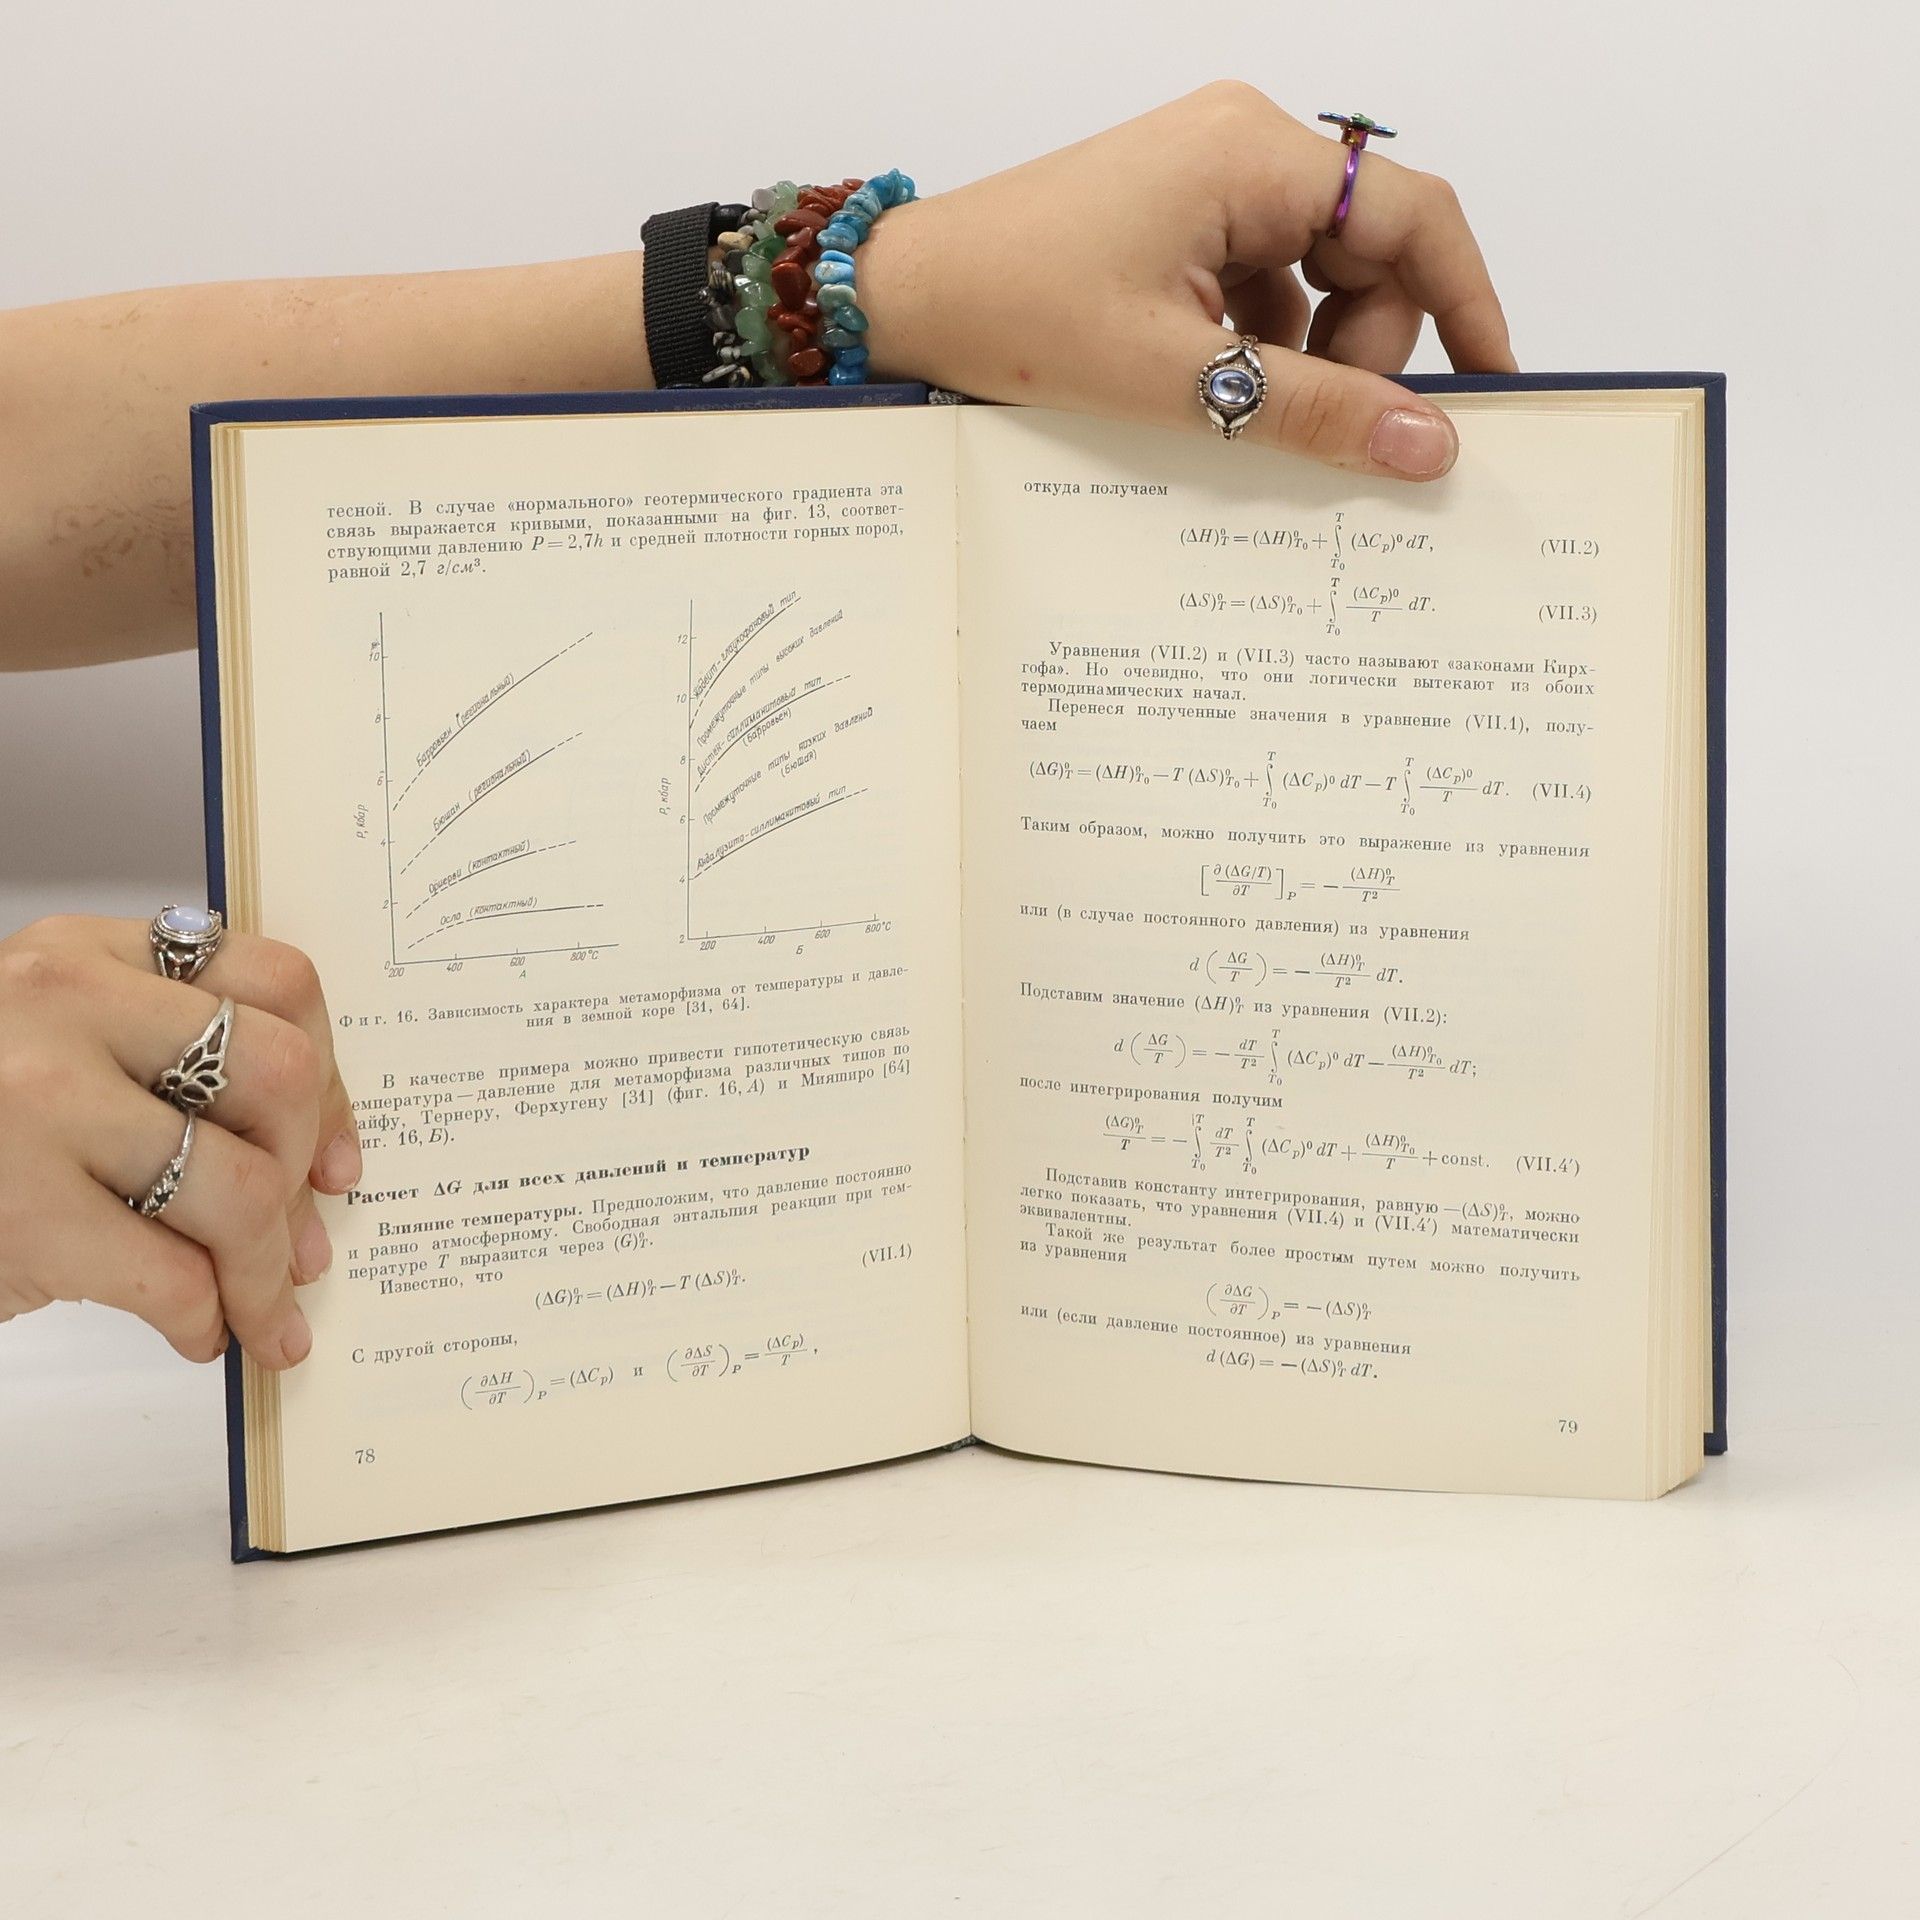 тесной. В случае «нормального» геотермического градиента эта
связь выражается кривыми, показанными на фиг. 13, соответ-
ствующими давлению P = 2,7h и средней плотности горных пород,
равной 2,7 г/см³.
10
8
6
4
2
0
P, кбар
Барровьен (региональный)
Бюшан (региональный)
(контактный)
Осло (контактный)
200 400 600 800 °C
А
12
10
8
6
4
2
P, кбар
Жадеит-глаукофановый тип
Промежуточные типы высоких давлений
Дистен-силлиманитовый тип
(барровьен)
Промежуточные типы низких давлений
(бюшан)
Андалузито-силлиманитовый тип
200 400 600 800 °C
Б
Фиг. 16. Зависимость характера метаморфизма от температуры и давле-
ния в земной коре [31, 64].
В качестве примера можно привести гипотетическую связь
емпература — давление для метаморфизма различных типов по
айфу, Тернеру, Ферхугену [31] (фиг. 16, А) и Мияширо [64]
иг. 16, Б).
Расчет ΔG для всех давлений и температур
Влияние температуры. Предположим, что давление постоянно
и равно атмосферному. Свободная энтальпия реакции при тем-
пературе T выразится через (G)⁰_T.
Известно, что
(ΔG)⁰_T = (ΔH)⁰_T — T (ΔS)⁰_T. (VII.1)
С другой стороны,
(∂ΔH/∂T)_P = (ΔC_p) и (∂ΔS/∂T)_P = (ΔC_p)/T ,
78
откуда получаем
(ΔH)⁰_T = (ΔH)⁰_T₀ + ∫_T₀^T (ΔC_p)⁰ dT, (VII.2)
(ΔS)⁰_T = (ΔS)⁰_T₀ + ∫_T₀^T (ΔC_p)⁰/T dT. (VII.3)
Уравнения (VII.2) и (VII.3) часто называют «законами Кирх-
гофа». Но очевидно, что они логически вытекают из обоих
термодинамических начал.
Перенеся полученные значения в уравнение (VII.1), полу-
чаем
(ΔG)⁰_T = (ΔH)⁰_T₀ — T (ΔS)⁰_T₀ + ∫_T₀^T (ΔC_p)⁰ dT — T ∫_T₀^T (ΔC_p)⁰/T dT. (VII.4)
Таким образом, можно получить это выражение из уравнения
[∂(ΔG/T)/∂T]_P = — (ΔH)⁰_T/T²
или (в случае постоянного давления) из уравнения
d (ΔG/T) = — (ΔH)⁰_T/T² dT.
Подставим значение (ΔH)⁰_T из уравнения (VII.2):
d (ΔG/T) = — dT/T² ∫_T₀^T (ΔC_p)⁰ dT — (ΔH)⁰_T₀/T² dT;
после интегрирования получим
(ΔG)⁰_T/T = — ∫_T₀^T dT/T² ∫_T₀^T (ΔC_p)⁰ dT + (ΔH)⁰_T₀/T + const. (VII.4′)
Подставив константу интегрирования, равную —(ΔS)⁰_T, можно
легко показать, что уравнения (VII.4) и (VII.4′) математически
эквивалентны.
Такой же результат более простым путем можно получить
из уравнения
(∂ΔG/∂T)_P = — (ΔS)⁰_T
или (если давление постоянное) из уравнения
d (ΔG) = — (ΔS)⁰_T dT.
79